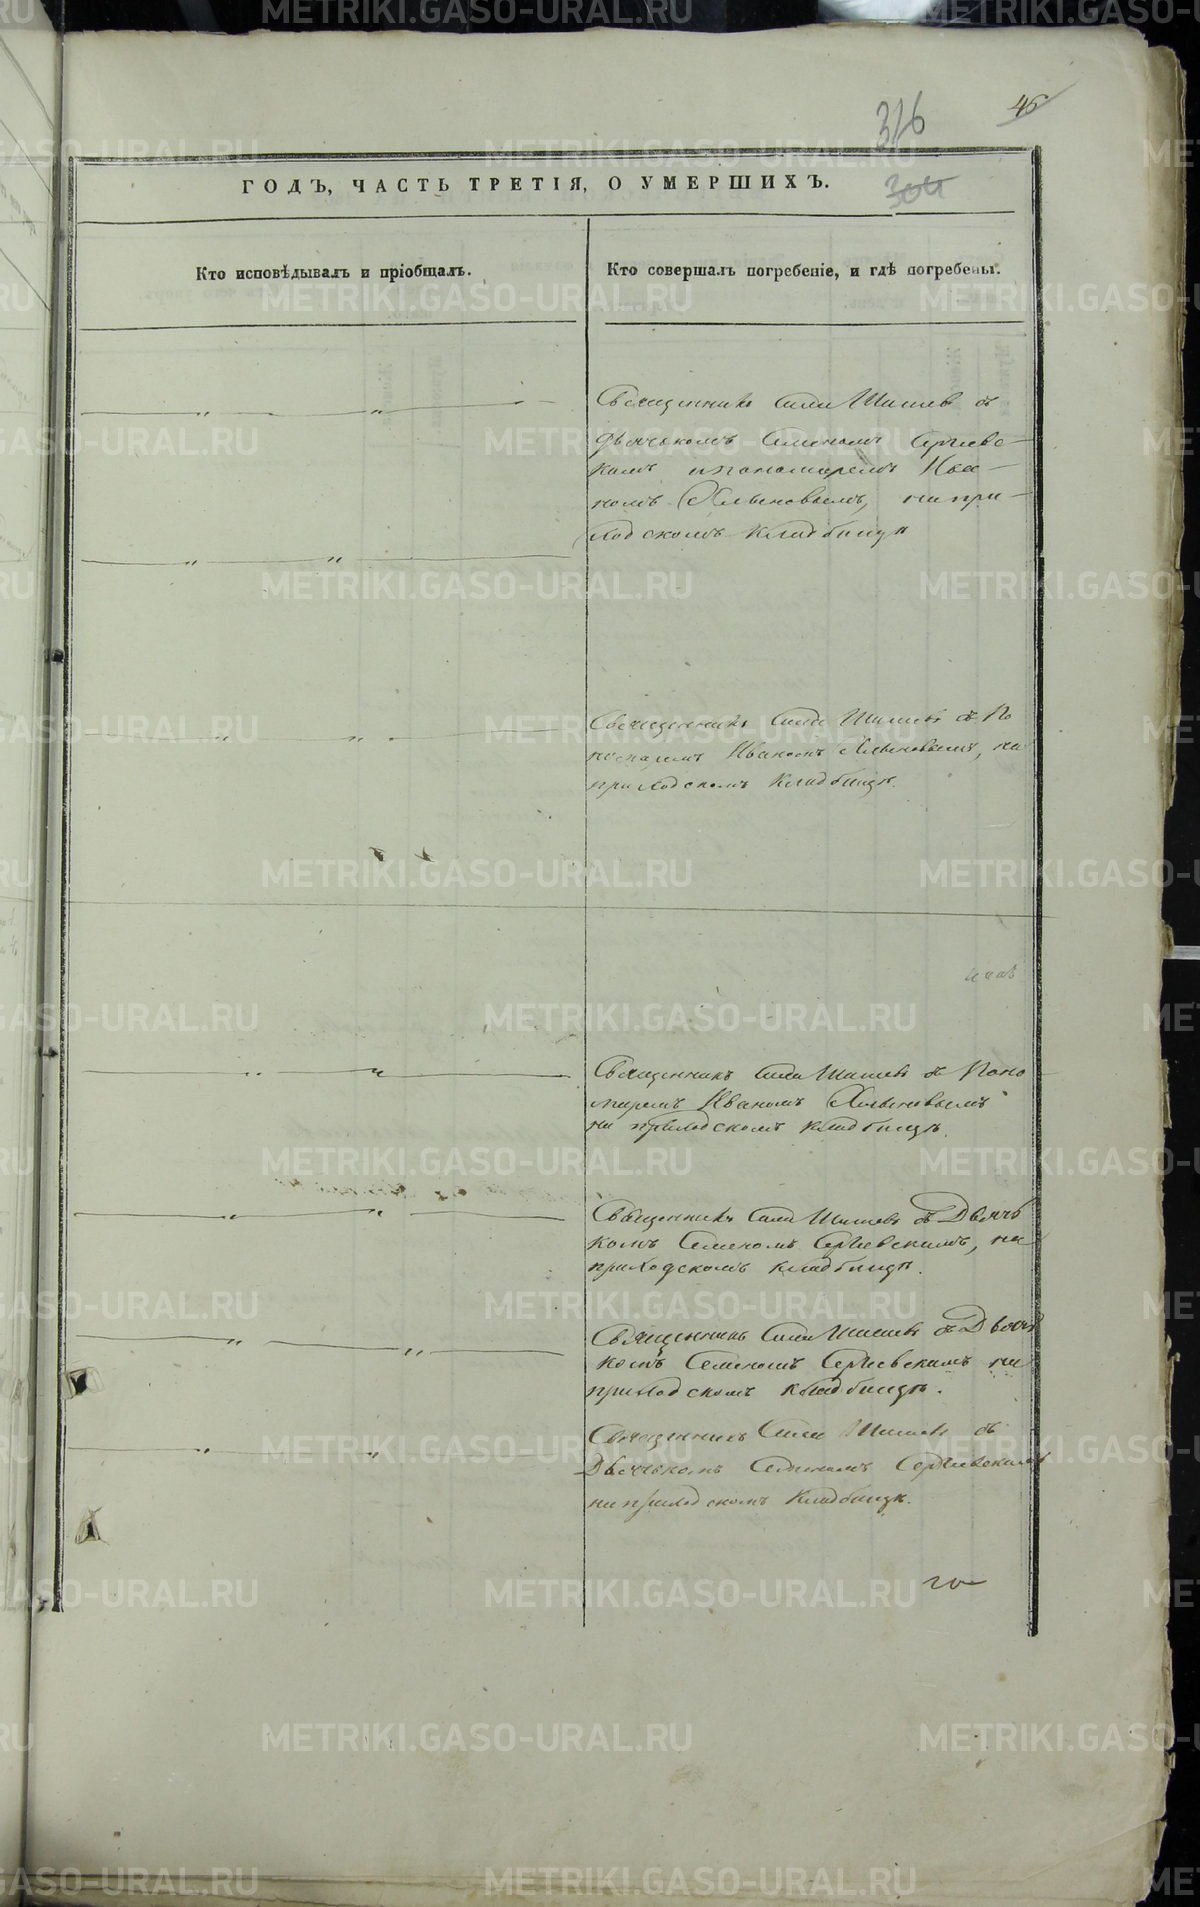 46
316
304
ГОДЪ, ЧАСТЬ ТРЕТІЯ, О УМЕРШИХЪ.
Кто исповѣдывалъ и пріобщалъ.
Кто совершалъ погребеніе, и гдѣ погребены.
Священникъ Сила Шишевъ съ
дьячькомъ Семеномъ Сергіевс-
кимъ и пономаремъ Ива-
номъ Хлыновымъ, на при-
ходскомъ кладбищѣ
Священникъ Сила Шишевъ съ По
номаремъ Иваномъ Хлыновымъ, на
приходскомъ кладбищѣ.
Священникъ Сила Шишевъ съ Поно
маремъ Иваномъ Хлыновымъ
на приходскомъ кладбищѣ.
Священникъ Сила Шишевъ съ Дьячь
комъ Семеномъ Сергіевскимъ, на
приходскомъ кладбищѣ.
Священникъ Сила Шишевъ съ Дьячь
комъ Семеномъ Сергіевскимъ на
приходскомъ кладбищѣ.
Священникъ Сила Шишевъ съ
Дьячькомъ Семеномъ Сергіевскимъ
на приходскомъ кладбищѣ.
METRIKI.GASO-URAL.RU